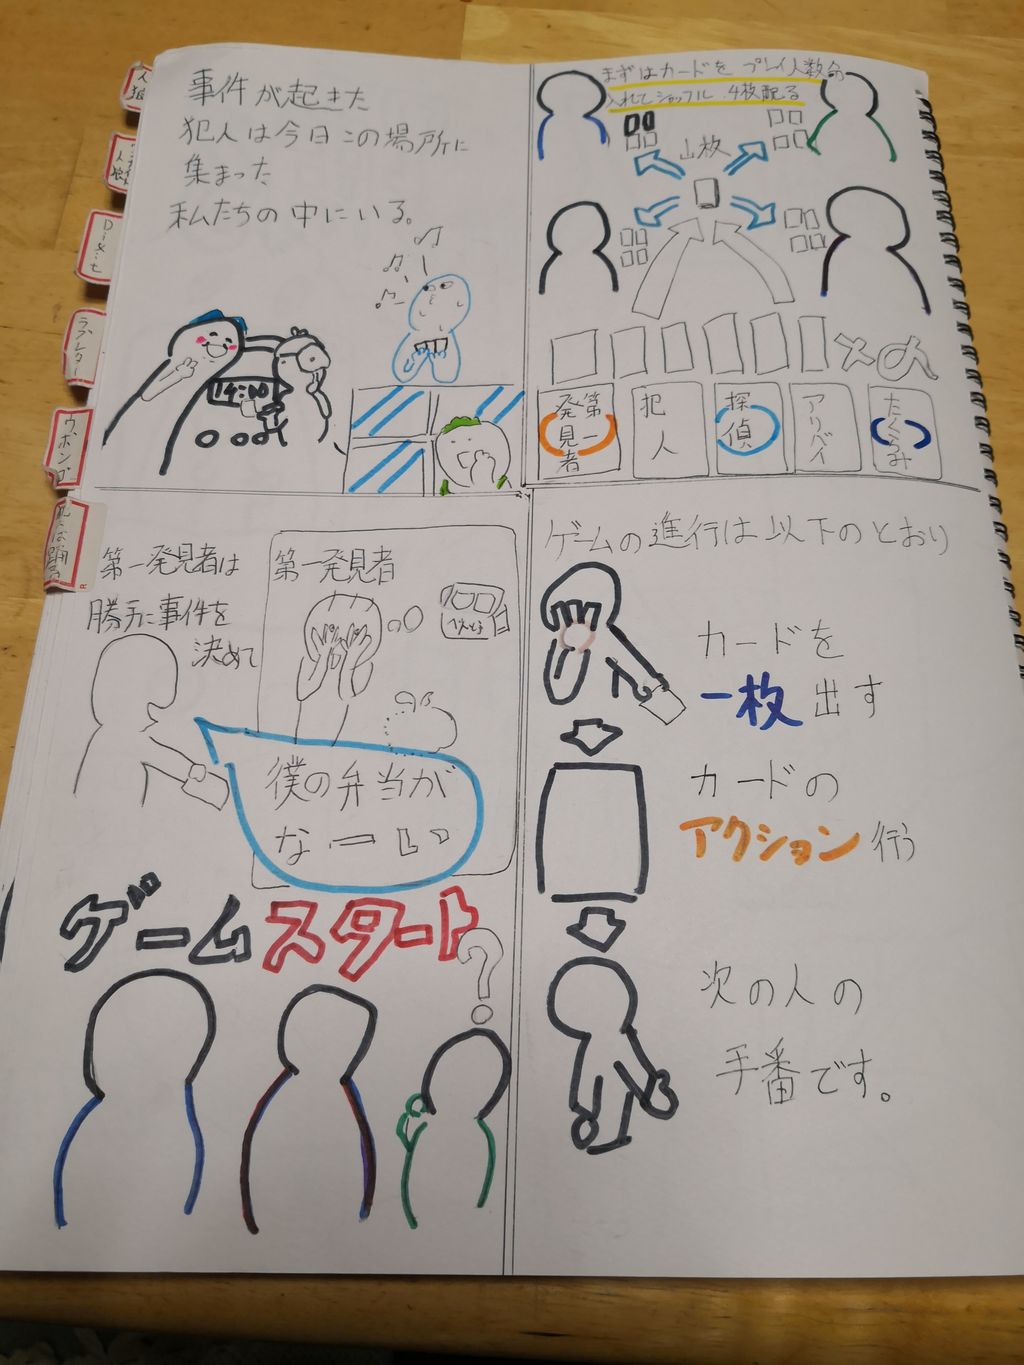 事件が起きた
犯人は今日この場所に
集まった
私たちの中にいる。
14:00
まずはカードを プレイ人数分
入れてシャッフル 4枚配る
山枚
第一
発見者
犯人
探偵
アリバイ
たくらみ
第一発見者は
勝手に事件を
決めて
第一発見者
僕の弁当が
なーい
ゲームスタート
?
ゲームの進行は以下のとおり
カードを
一枚出す
カードの
アクション行う
次の人の
手番です。
ラブレター
ウボンゴ